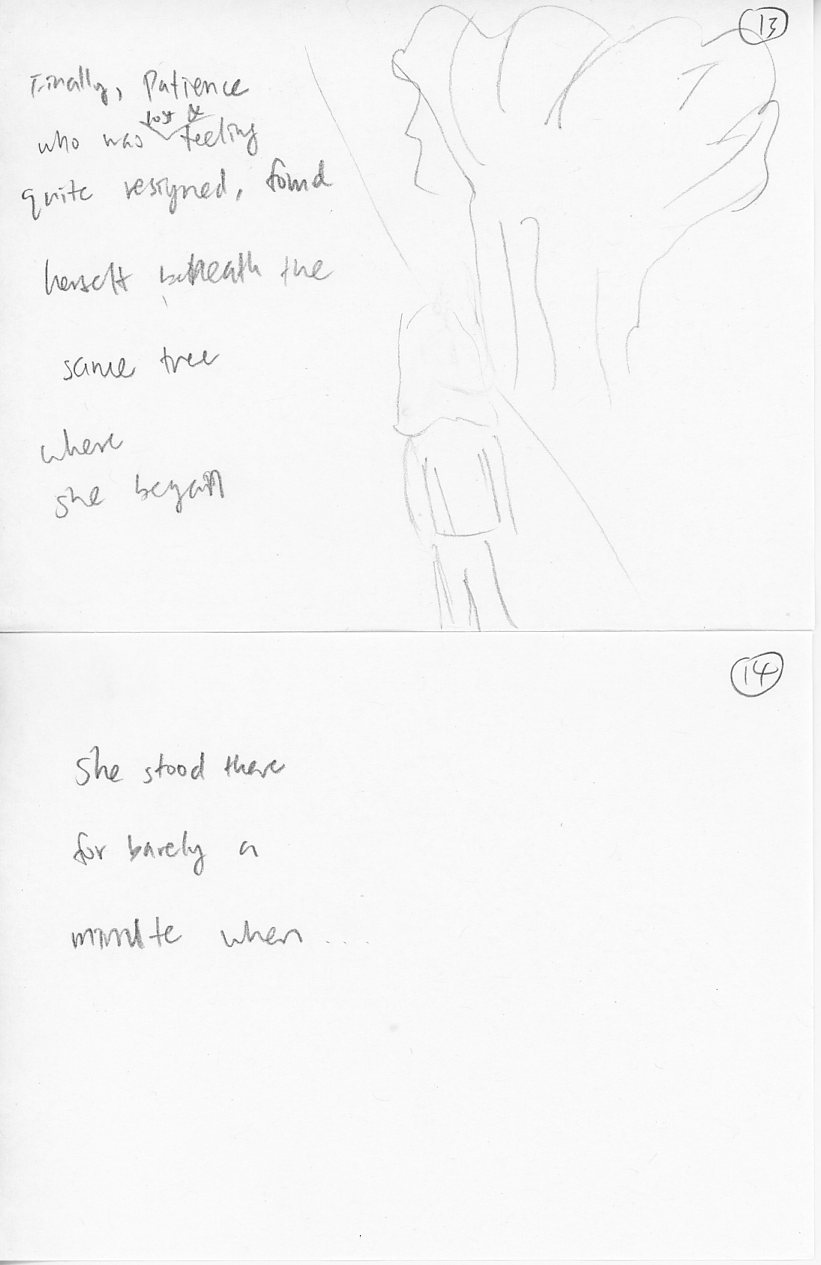 13
Finally, Patience
lost &
who was feeling
quite resigned, found
herself beneath the
same tree
where
she began
14
She stood there
for barely a
minute when ...